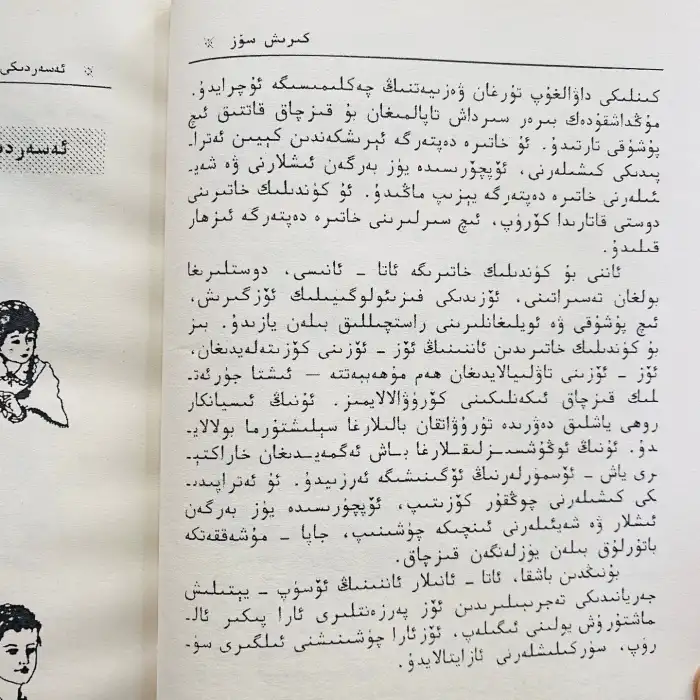 ئەسەردىكى
ئەسەرد
كىرىش سۆز
كىنلىكى داۋالغۇپ تۇرغان ۋەزىيەتنىڭ چەكلىمىسىگە ئۇچرايدۇ.
مۇڭداشقۇدەك بىرەر سىرداش تاپالمىغان بۇ قىزچاق قاتتىق ئىچ
پۇشۇقى تارتىدۇ. ئۇ خاتىرە دەپتەرگە ئېرىشكەندىن كېيىن ئەترا‍ـ
پىدىكى كىشىلەرنى، ئۆپچۆرىسىدە يۈز بەرگەن ئىشلارنى ۋە شەيـ
ئىلەرنى خاتىرە دەپتەرگە يېزىپ ماڭىدۇ. ئۇ كۈندىلىك خاتىرىنى
دوستى قاتارىدا كۆرۈپ، ئىچ سىرلىرىنى خاتىرە دەپتەرگە ئىزھار
قىلىدۇ.
ئاننى بۇ كۈندىلىك خاتىرىگە ئاتا - ئانىسى، دوستلىرىغا
بولغان تەسىراتىنى، ئۆزىدىكى فىزىئولوگىيىلىك ئۆزگىرىش،
ئىچ پۇشۇقى ۋە ئويلىغانلىرىنى راستچىللىق بىلەن يازىدۇ. بىز
بۇ كۈندىلىك خاتىرىدىن ئاننىنىڭ ئۆز - ئۆزىنى كۆزىتەلەيدىغان،
ئۆز - ئۆزىنى تاۋلىيالايدىغان ھەم مۇھەببەتتە — ئىشتا جۈرئەتـ
لىك قىزچاق ئىكەنلىكىنى كۆرۈۋالالايمىز. ئۇنىڭ ئىسيانكار
روھى ياشلىق دەۋرىدە تۇرۇۋاتقان بالىلارغا سېلىشتۇرما بولالايـ
دۇ. ئۇنىڭ ئوڭۇشسىزلىقلارغا باش ئەگمەيدىغان خاراكتېـ
رى ياش - ئۆسمۈرلەرنىڭ ئۆگىنىشىگە ئەرزىيدۇ. ئۇ ئەتراپىدىـ
كى كىشىلەرنى چوڭقۇر كۆزىتىپ، ئۆپچۆرىسىدە يۈز بەرگەن
ئىشلار ۋە شەيئىلەرنى ئىنچىكە چۈشىنىپ، جاپا - مۇشەققەتكە
باتۇرلۇق بىلەن يۈزلەنگەن قىزچاق.
بۇنىڭدىن باشقا، ئاتا - ئانىلار ئاننىنىڭ ئۆسۈپ - يېتىلىش
جەريانىدىكى تەجرىبىلىرىدىن ئۆز پەرزەنتلىرى ئارا پىكىر ئالـ
ماشتۇرۇش يولىنى ئىگىلەپ، ئۆزئارا چۈشىنىشنى ئىلگىرى سۈـ
رۈپ، سۈركىلىشلەرنى ئازايتالايدۇ.